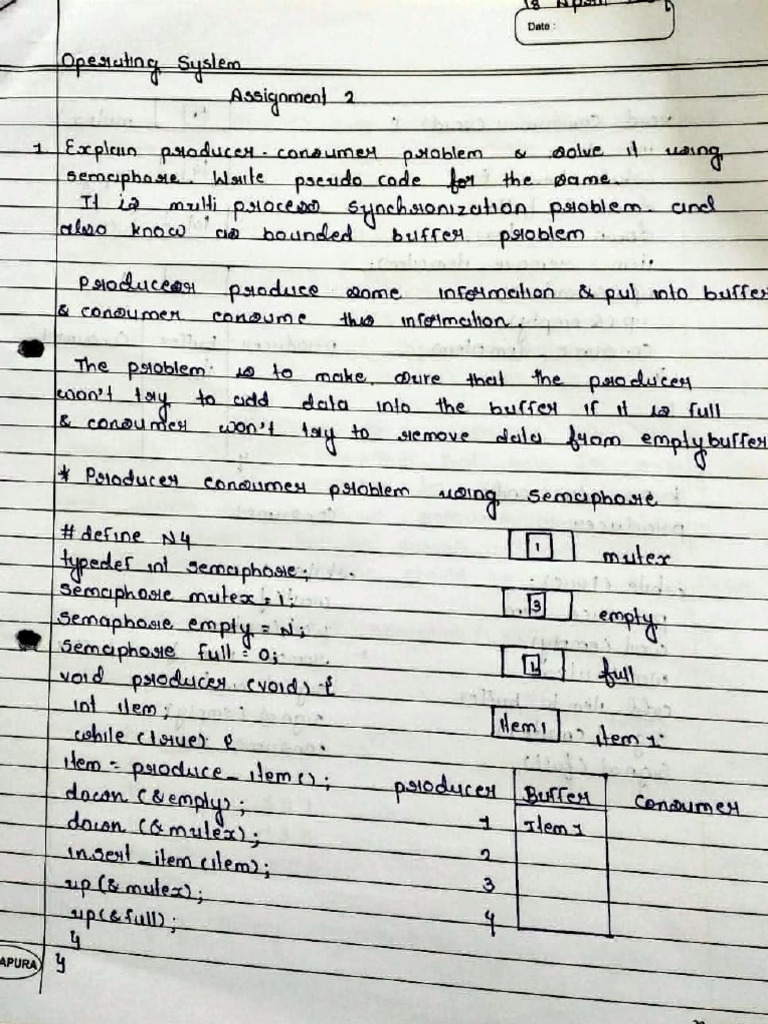 Date :
Operating System
Assignment 2
1 Explain producer-consumer problem & solve it using
semaphore. Write pseudo code for the same.
It is multi process synchronization problem. and
also know as bounded buffer problem.
Producer produce some information & put into buffer
& consumer consume this information.
The problem is to make sure that the producer
won't try to add data into the buffer if it is full
& consumer won't try to remove data from empty buffer
* Producer consumer problem using semaphore
# define N4
typedef int semaphore;
semaphore mutex = 1;
1 mutex
semaphore empty = N;
3 empty
semaphore full = 0;
1 full
void producer (void) {
int item;
Item1 item 1.
while (true) {
item = produce_item();
producer Buffer Consumer
down (&empty);
1 Item 1
down (&mutex);
2
insert_item (item);
3
up (& mutex);
4
up(&full);
}
}
APURA